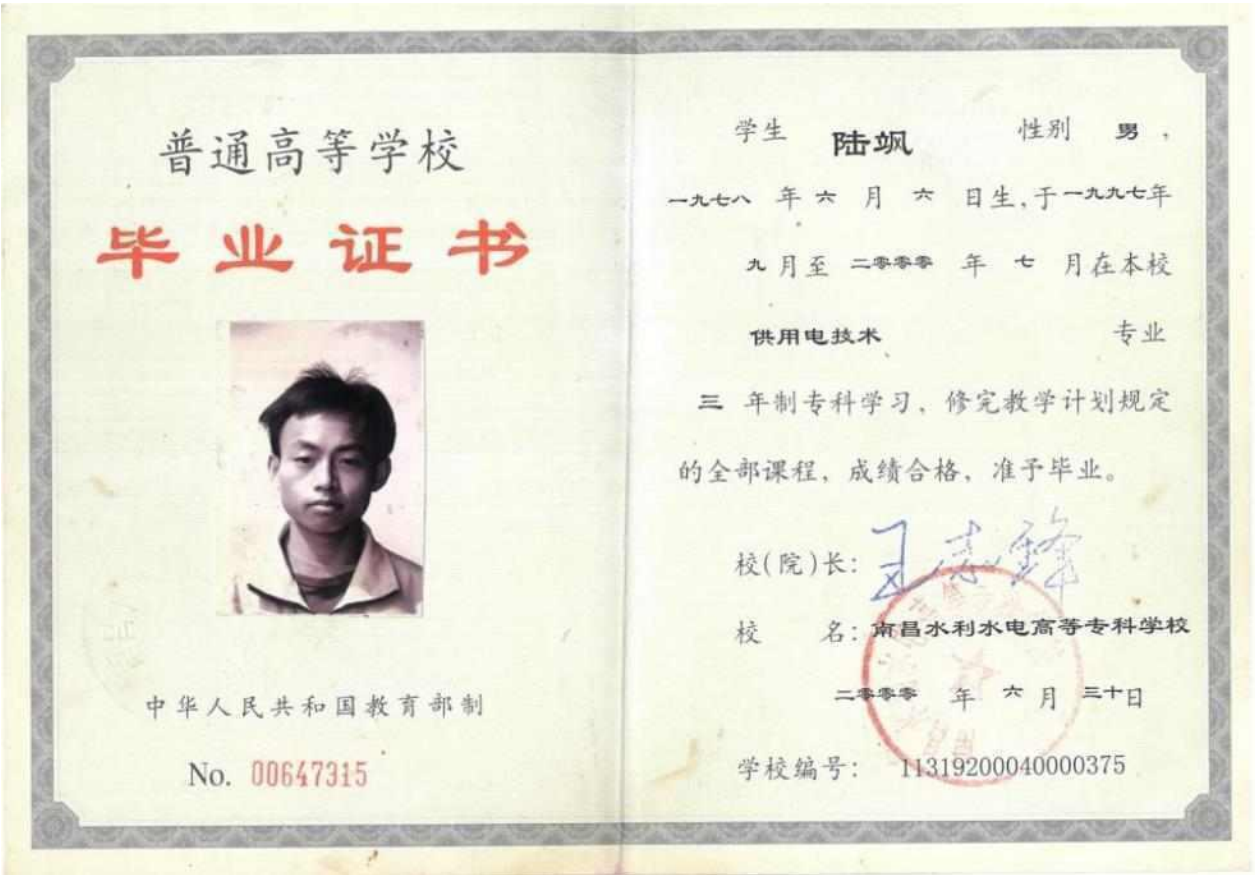 普通高等学校
毕业证书
中华人民共和国教育部制
No. 00647315
学生 陆飒 性别 男,
一九七八 年 六 月 六 日生,于一九九七年
九 月至 二零零零 年 七 月在本校
供用电技术 专业
三 年制专科学习、修完教学计划规定
的全部课程,成绩合格,准予毕业。
校(院)长: 王志锋
校 名: 南昌水利水电高等专科学校
二零零零 年 六 月 三十日
学校编号: 11319200040000375